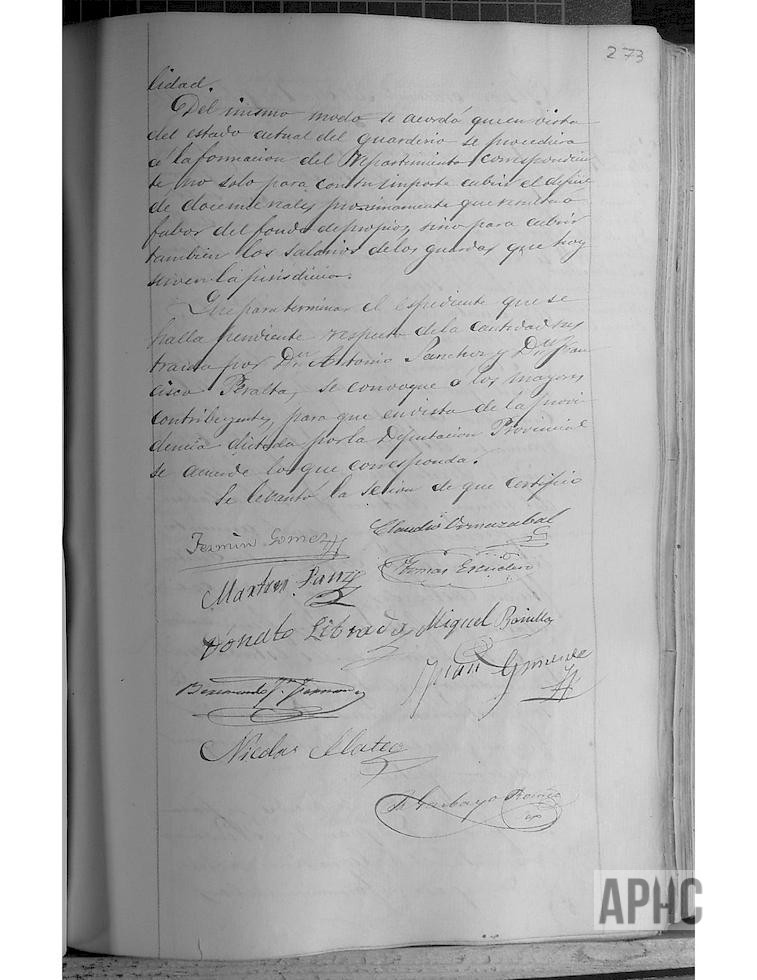 273
lidad.
Del mismo modo se acordó que en vista
del estado actual del guarderio se procediera
á la formacion del repartimiento correspondien
te, no solo para con su importe cubrir el deficit
de doce mil reales proximamente que resulta a
fabor del fondo de propios, sino para cubrir
tambien los salarios de los guardas que hoy
sirven la jurisdiccion.
Que para terminar el espediente que se
halla pendiente respecto de la cantidad sus
traida por Dn. Antonio Sanchez y Dn. Fran
cisco Peralta, se convoque á los mayores
contribuyentes, para que en vista de la provi-
dencia dictada por la Diputacion Provincial
se acuerde lo que corresponda.
Se levantó la sesion de que certifico
Fermin Gomez
Claudio Ormazabal
Martin Sanz
Thomas Escudero
Donato Librada
Miguel Bonilla
Bernardo Fernandez
Juan
Nicolas Mateo
Garbayo
APHC